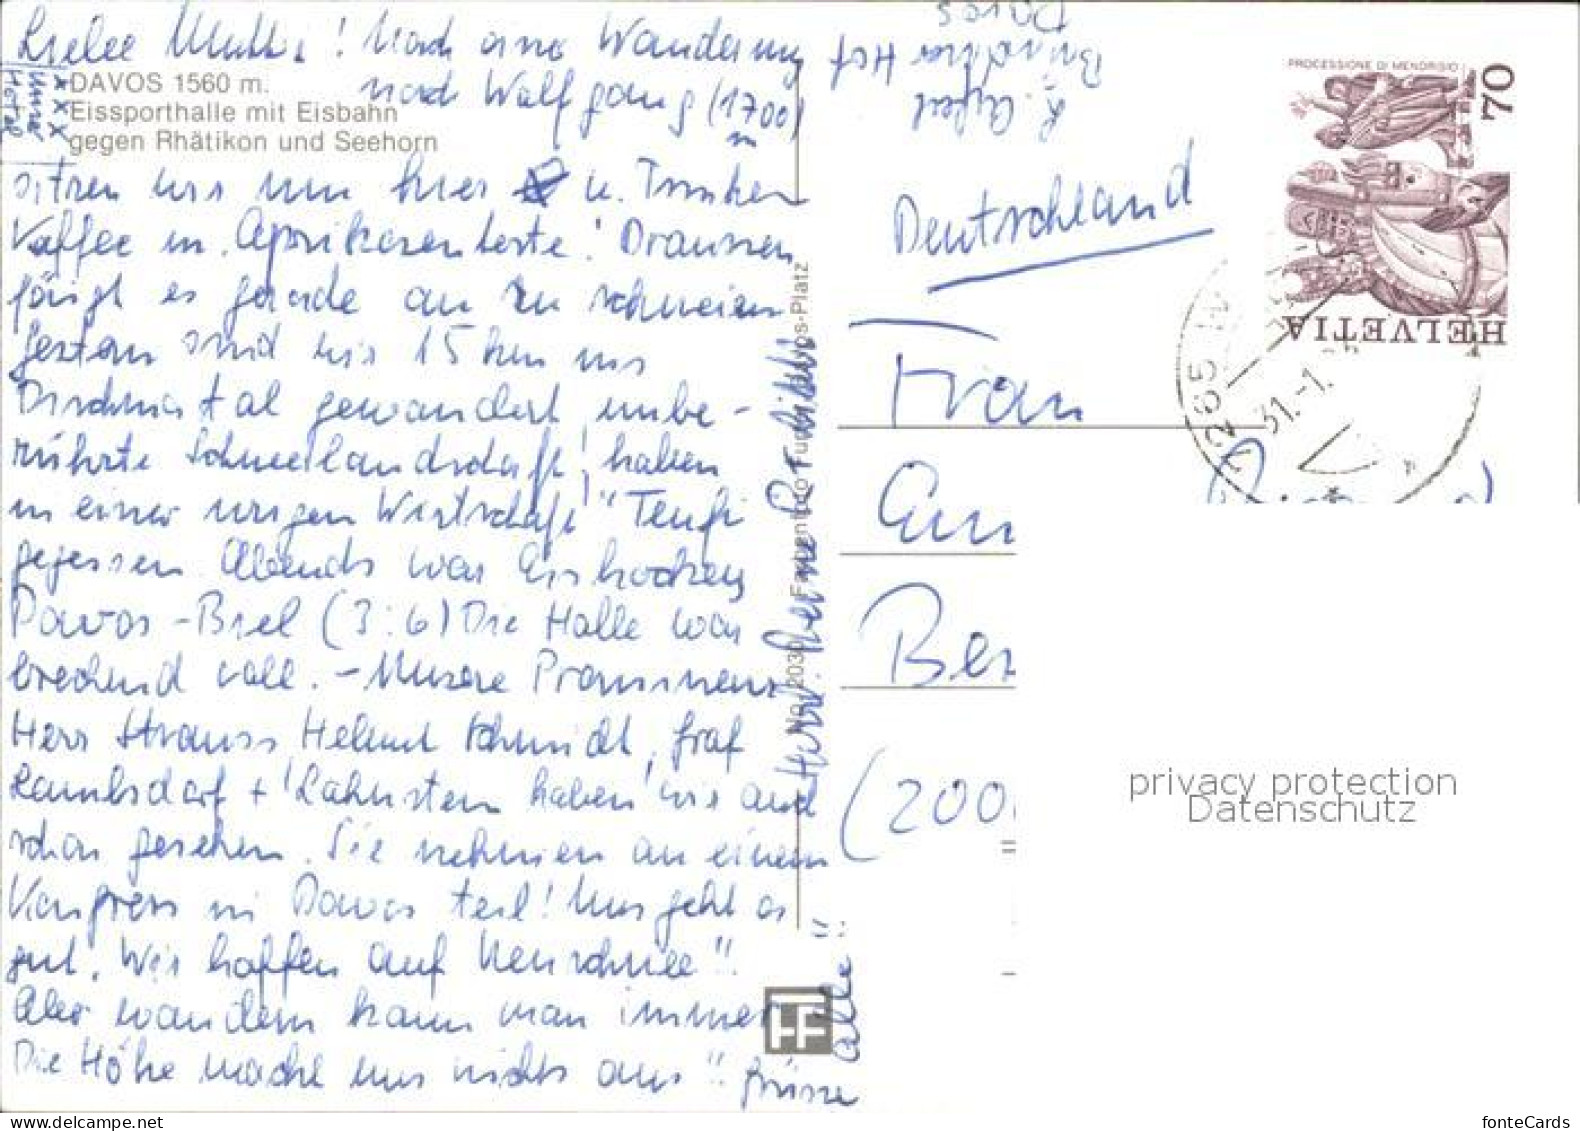 Liebe Mutti! Nach einer Wanderung
nach Wolfgang (1700 m)
xxx Unser Hotel
DAVOS 1560 m.
Eissporthalle mit Eisbahn
gegen Rhätikon und Seehorn
sitzen wir nun hier u. Trinken
Kaffee m. Aprikosentorte! Draussen
fängt es gerade an zu schneien
Gestern sind wir 15 km ins
Dischmatal gewandert, unbe-
rührte Schneelandschaft! haben
in einer urigen Wirtschaft "Teufi
gegessen. Abends war Eishockey
Davos - Biel (3:6) Die Halle war
brechend voll. - Unsere Prominenz
Herr Strauss Helmut Schmidt, Graf
Lambsdorf + Lahnstein haben wir auch
schon gesehen. Sie nehmen an einem
Kongress in Davos teil! Uns geht es
gut. Wir hoffen auf Neuschnee"!
Aber wandern kann man immer
Die Höhe macht uns nichts aus"! Grüsse
alle!!
No. 2030 Farbenfoto
Davos-Platz
Davos
Hof
Deutschland
Frau
Ber
(200
PROCESSIONE DI MENDRISIO
70
HELVETIA
7265
31.-1.
FF
privacy protection
Datenschutz
fonteCards